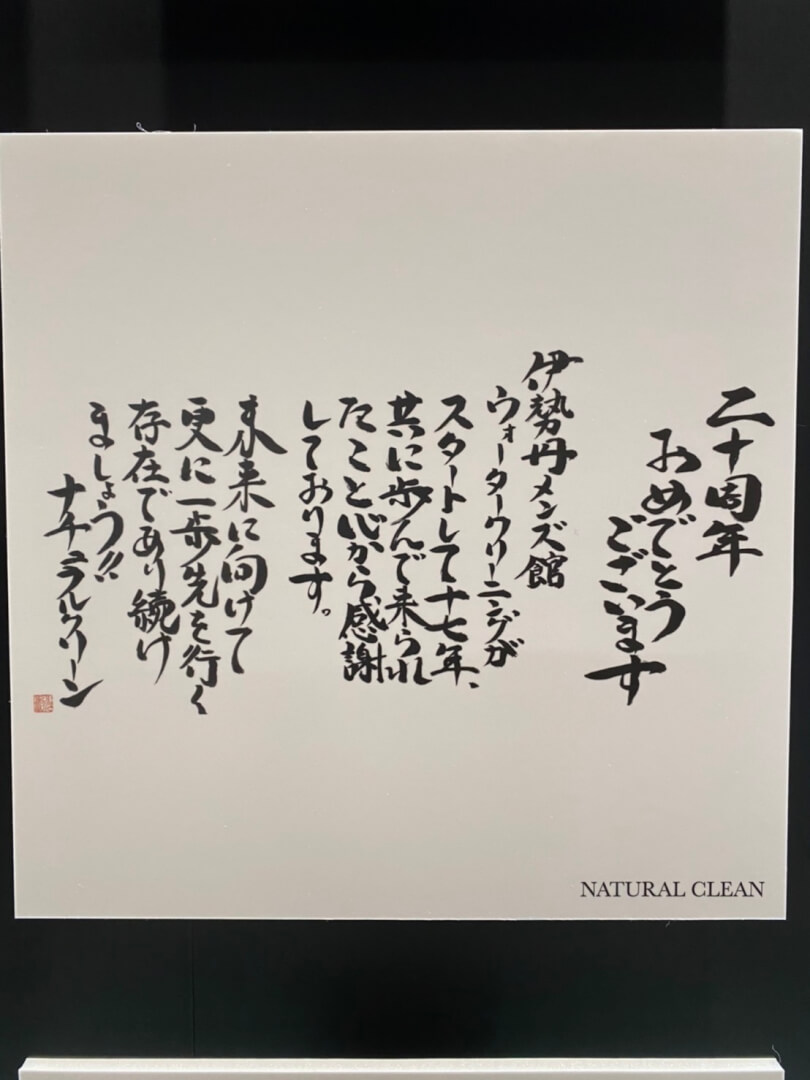 二十周年
おめでとう
ございます
伊勢丹メンズ館
ウォータークリーニングが
スタートして十七年、
共に歩んで来られ
たこと心から感謝
しております。
未来に向けて
更に一歩先を行く
存在であり続け
ましょう!!
ナチュラルクリーン
NATURAL CLEAN